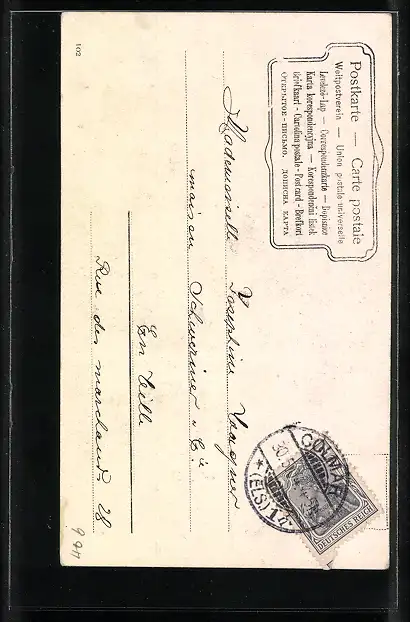 Postkarte — Carte postale
Weltpostverein — Union postale universelle
Levelező-Lap — Correspondenzkarte — Dopisnice
Karta korespondencyjna — Korespondenční lístek
Briefkaart - Cartolina postale - Post card - Brefkort
ОТКРЫТОЕ - ПИСЬМО. ДОПИСНА КАРТА
Mademoiselle Joséphine Wagner
maison Schwerimer & Cie
En Ville
Rue des marchands 28
COLMAR
(ELS) 1
DEUTSCHES REICH
102